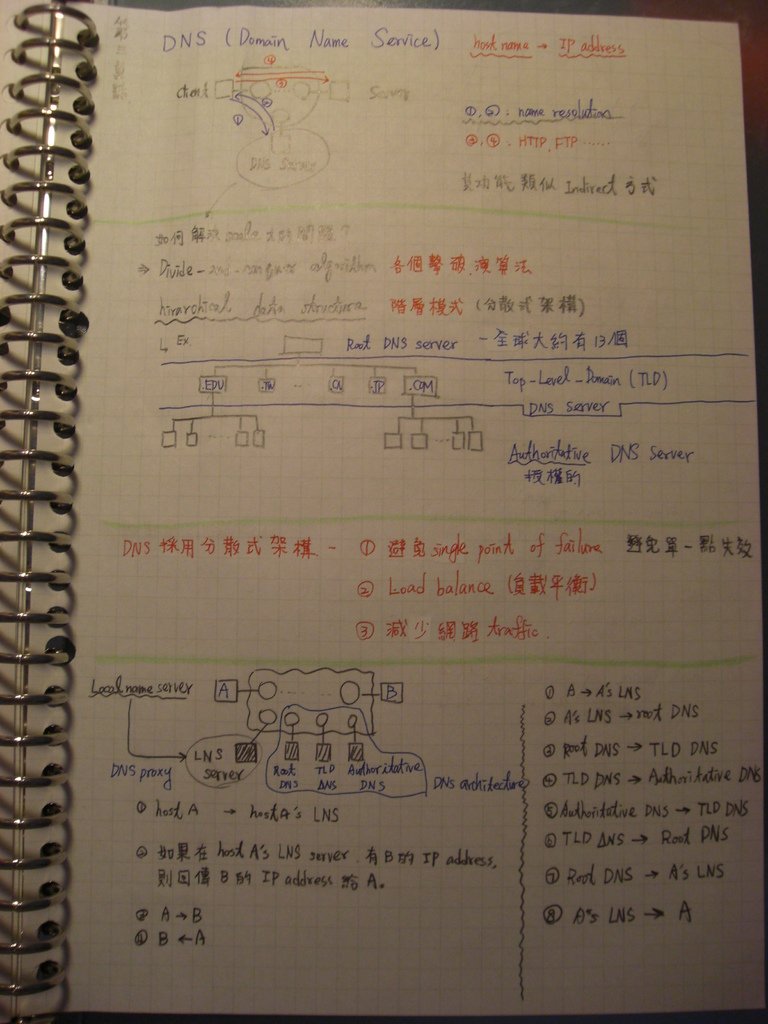 DNS (Domain Name Service)
host name → IP address
④
client
Server
③
②
①
①,②: name resolution
③,④: HTTP, FTP ......
DNS Server
其功能類似 Indirect 方式
如何解決 scale 大的問題?
⇒ Divide-and-conquer algorithm 各個擊破演算法
hirarchical data structure 階層模式 (分散式架構)
↳ Ex. Root DNS server - 全球大約有13個
.EDU .TW ... .JP .COM
Top-Level-Domain (TLD)
DNS server
Authoritative DNS server
授權的
DNS 採用分散式架構 - ① 避免 single point of failure 避免單一點失效
② Load balance (負載平衡)
③ 減少網路 traffic.
Local name server
A
B
LNS server
DNS proxy
Root DNS
TLD DNS
Authoritative DNS
DNS architecture
① host A → host A's LNS
② 如果在 host A's LNS server 有 B 的 IP address,
則回傳 B 的 IP address 給 A。
③ A → B
④ B ← A
① A → A's LNS
② A's LNS → root DNS
③ Root DNS → TLD DNS
④ TLD DNS → Authoritative DNS
⑤ Authoritative DNS → TLD DNS
⑥ TLD DNS → Root DNS
⑦ Root DNS → A's LNS
⑧ A's LNS → A